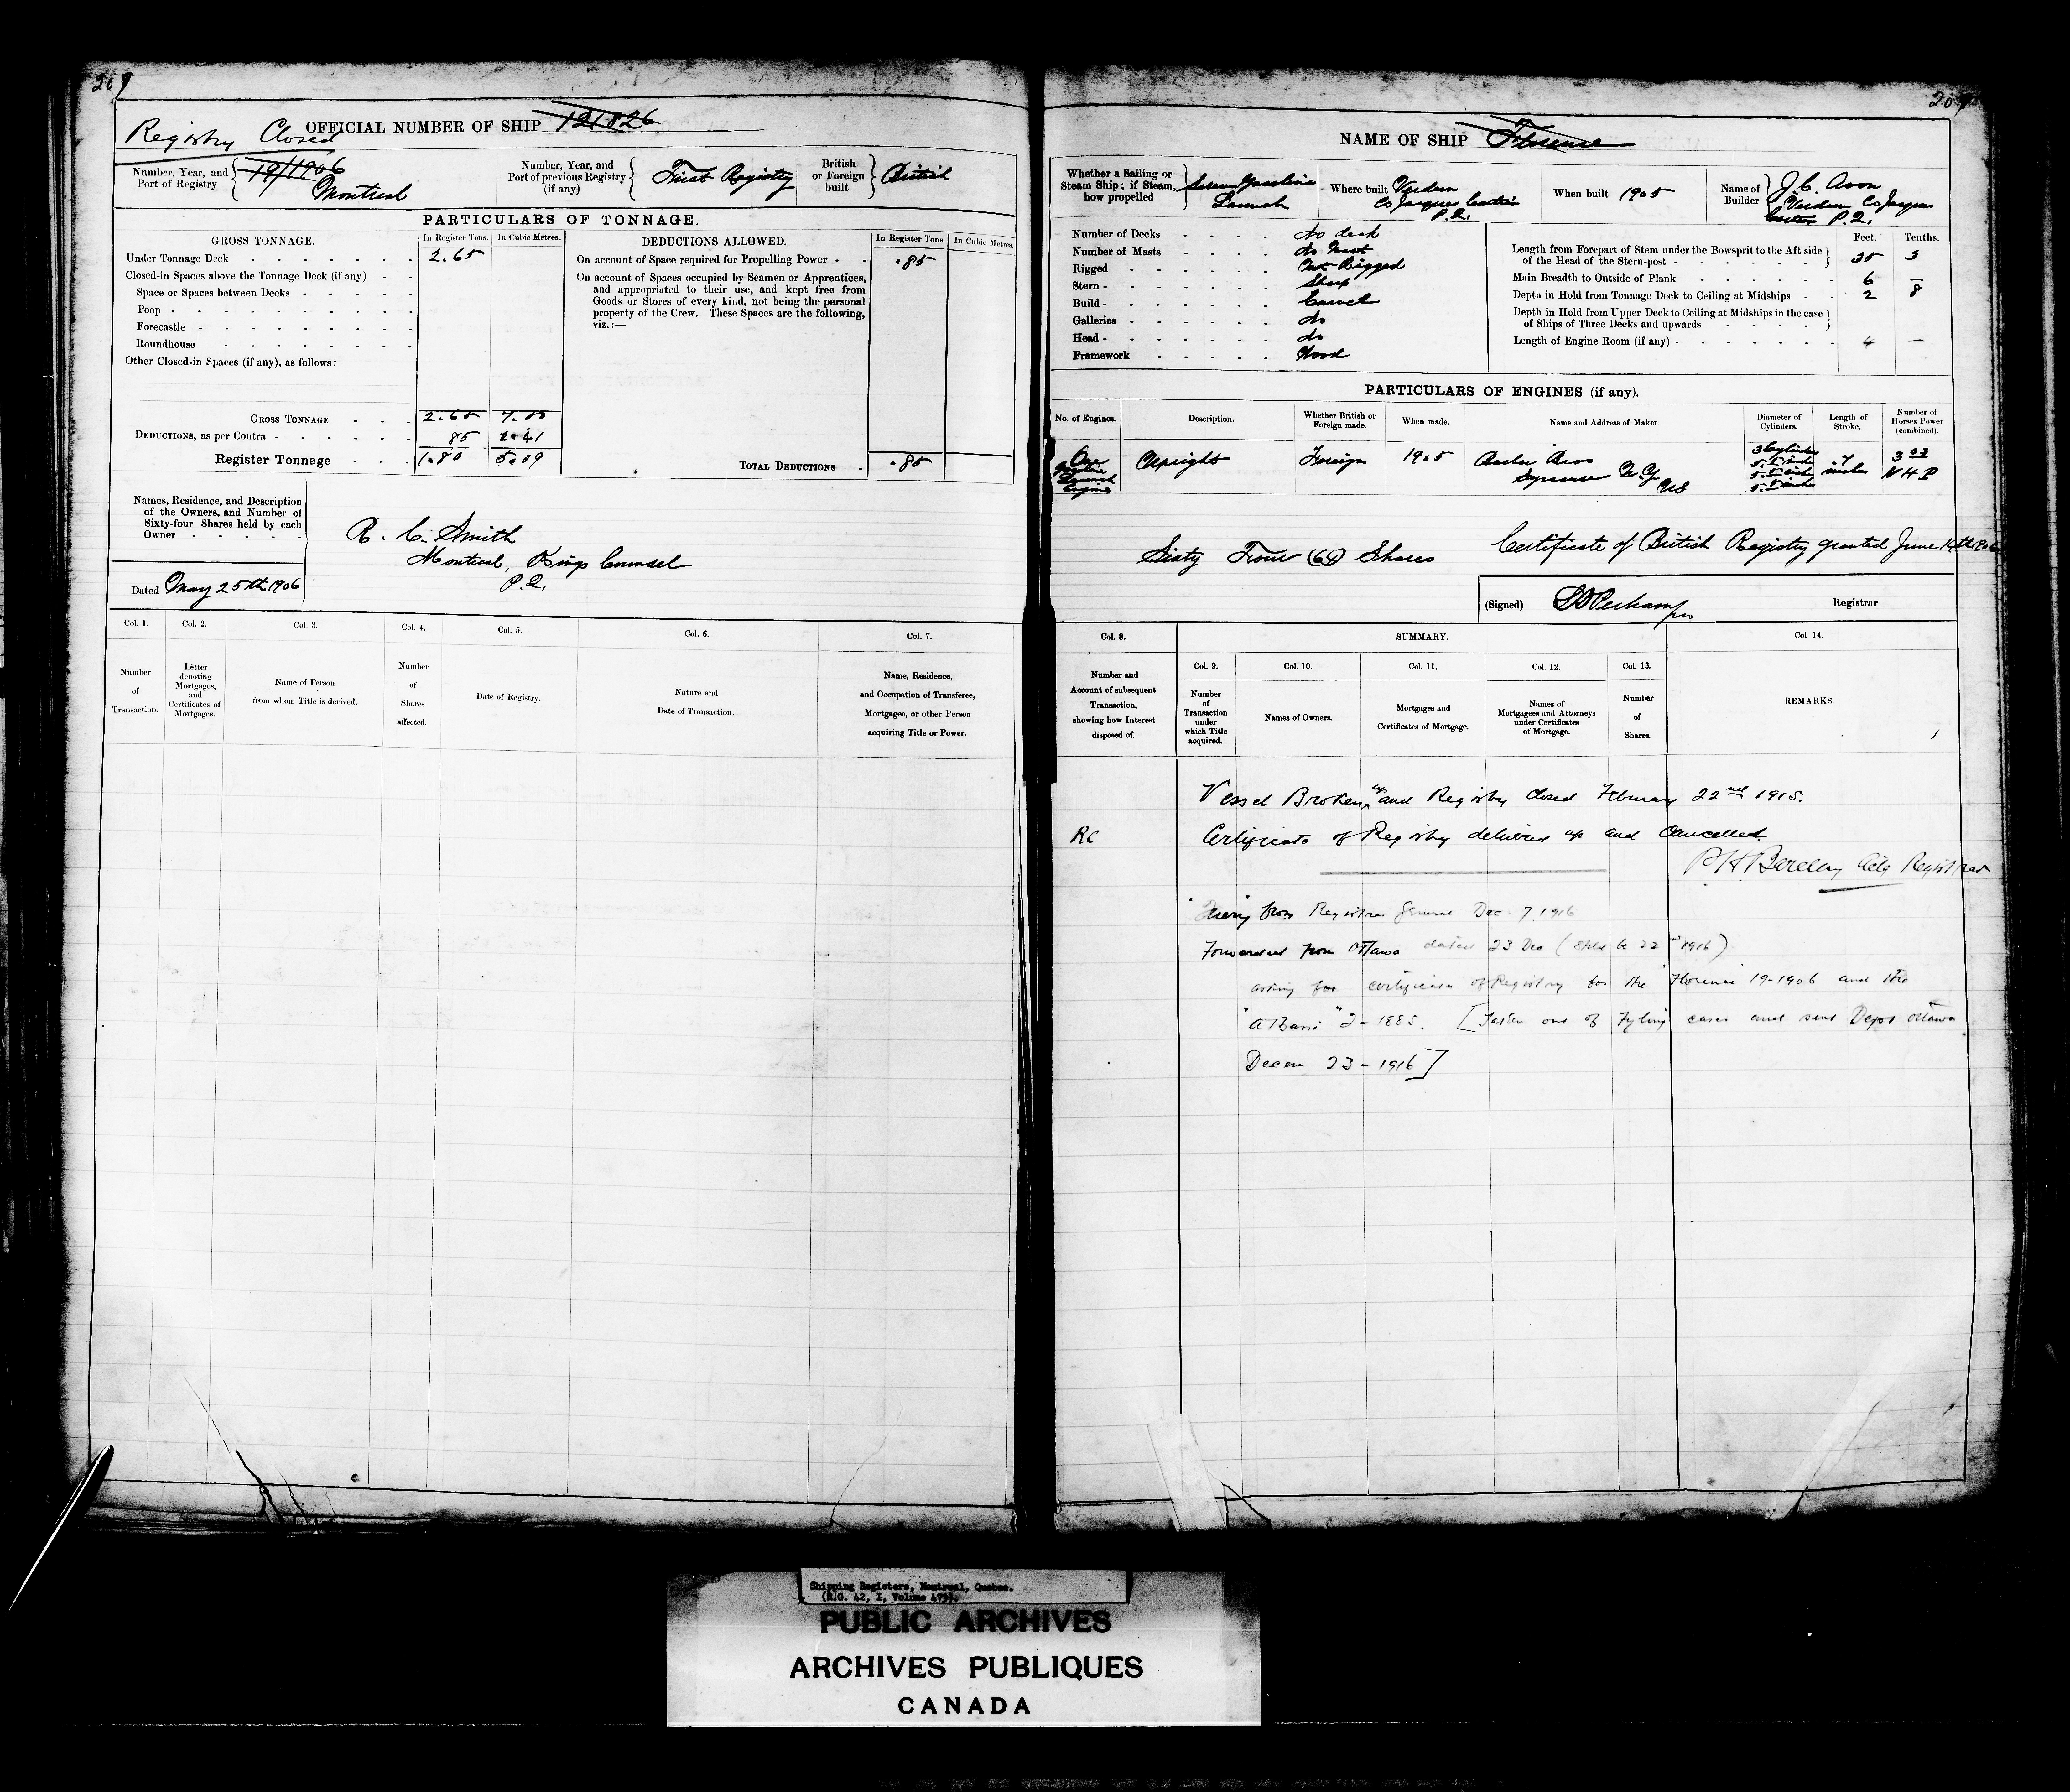 207
Registry Closed
OFFICIAL NUMBER OF SHIP 121826
Number, Year, and Port of Registry
19/1906
Montreal
Number, Year, and Port of previous Registry (if any)
First Registry
British or Foreign built
British
PARTICULARS OF TONNAGE.
GROSS TONNAGE. In Register Tons. In Cubic Metres.
Under Tonnage Deck 2.65
Closed-in Spaces above the Tonnage Deck (if any)
Space or Spaces between Decks
Poop
Forecastle
Roundhouse
Other Closed-in Spaces (if any), as follows:
GROSS TONNAGE 2.65 7.50
DEDUCTIONS, as per Contra 85 2.41
Register Tonnage 1.80 5.09
DEDUCTIONS ALLOWED. In Register Tons. In Cubic Metres.
On account of Space required for Propelling Power .85
On account of Spaces occupied by Seamen or Apprentices,
and appropriated to their use, and kept free from
Goods or Stores of every kind, not being the personal
property of the Crew. These Spaces are the following,
viz.:—
TOTAL DEDUCTIONS .85
Names, Residence, and Description
of the Owners, and Number of
Sixty-four Shares held by each
Owner
R. C. Smith
Montreal, Kings Counsel
P.Q.
Dated May 25th 1906
Col. 1. Col. 2. Col. 3. Col. 4. Col. 5. Col. 6. Col. 7.
Number of Transaction.
Letter denoting Mortgages, and Certificates of Mortgages.
Name of Person from whom Title is derived.
Number of Shares affected.
Date of Registry.
Nature and Date of Transaction.
Name, Residence, and Occupation of Transferee, Mortgagee, or other Person acquiring Title or Power.
207
NAME OF SHIP Florence
Whether a Sailing or Steam Ship; if Steam, how propelled
Screw Gasoline
Launch
Where built Verdun
Co Jacques Cartier
P.Q.
When built 1905
Name of Builder
J.C. Avon
Verdun Co Jacques
Cartier P.Q.
Number of Decks No deck
Number of Masts No Mast
Rigged Not Rigged
Stern Sharp
Build Carvel
Galleries No
Head No
Framework Wood
Feet. Tenths.
Length from Forepart of Stem under the Bowsprit to the Aft side
of the Head of the Stern-post 35 3
Main Breadth to Outside of Plank 6 —
Depth in Hold from Tonnage Deck to Ceiling at Midships 2 8
Depth in Hold from Upper Deck to Ceiling at Midships in the case
of Ships of Three Decks and upwards
Length of Engine Room (if any) 4 —
PARTICULARS OF ENGINES (if any).
No. of Engines. Description. Whether British or Foreign made. When made. Name and Address of Maker. Diameter of Cylinders. Length of Stroke. Number of Horses Power (combined).
One Gasoline Launch Engine
Upright Foreign 1905
Bros
Syracuse N.Y.
US
3 Cylinders
5.5 inches
5.5 inches
5.5 inches
7 inches
3 03
NHP
Sixty Four (64) Shares
Certificate of British Registry granted June 14th 1906
(Signed) Registrar
Col. 8. SUMMARY. Col 14.
Col. 9. Col. 10. Col. 11. Col. 12. Col. 13.
Number and Account of subsequent Transaction, showing how Interest disposed of.
Number of Transaction under which Title acquired.
Names of Owners.
Mortgages and Certificates of Mortgage.
Names of Mortgagees and Attorneys under Certificates of Mortgage.
Number of Shares.
REMARKS.
Vessel Broken up and Registry closed February 22nd 1915.
RC Certificate of Registry delivered up and Cancelled.
P H Barclay Actg Registrar
Query from Registrar General Dec. 7, 1916
Forwarded from Ottawa dated 23 Dec 1916)
asking for certificate of Registry for the "Florence" 19-1906 and the
2-1885. [Taken out of Fyling cases and sent Dept Ottawa
Decem 23-1916]
Shipping Registers, Montreal, Quebec.
(R.G. 42, I, Volume 479).
PUBLIC ARCHIVES
ARCHIVES PUBLIQUES
CANADA